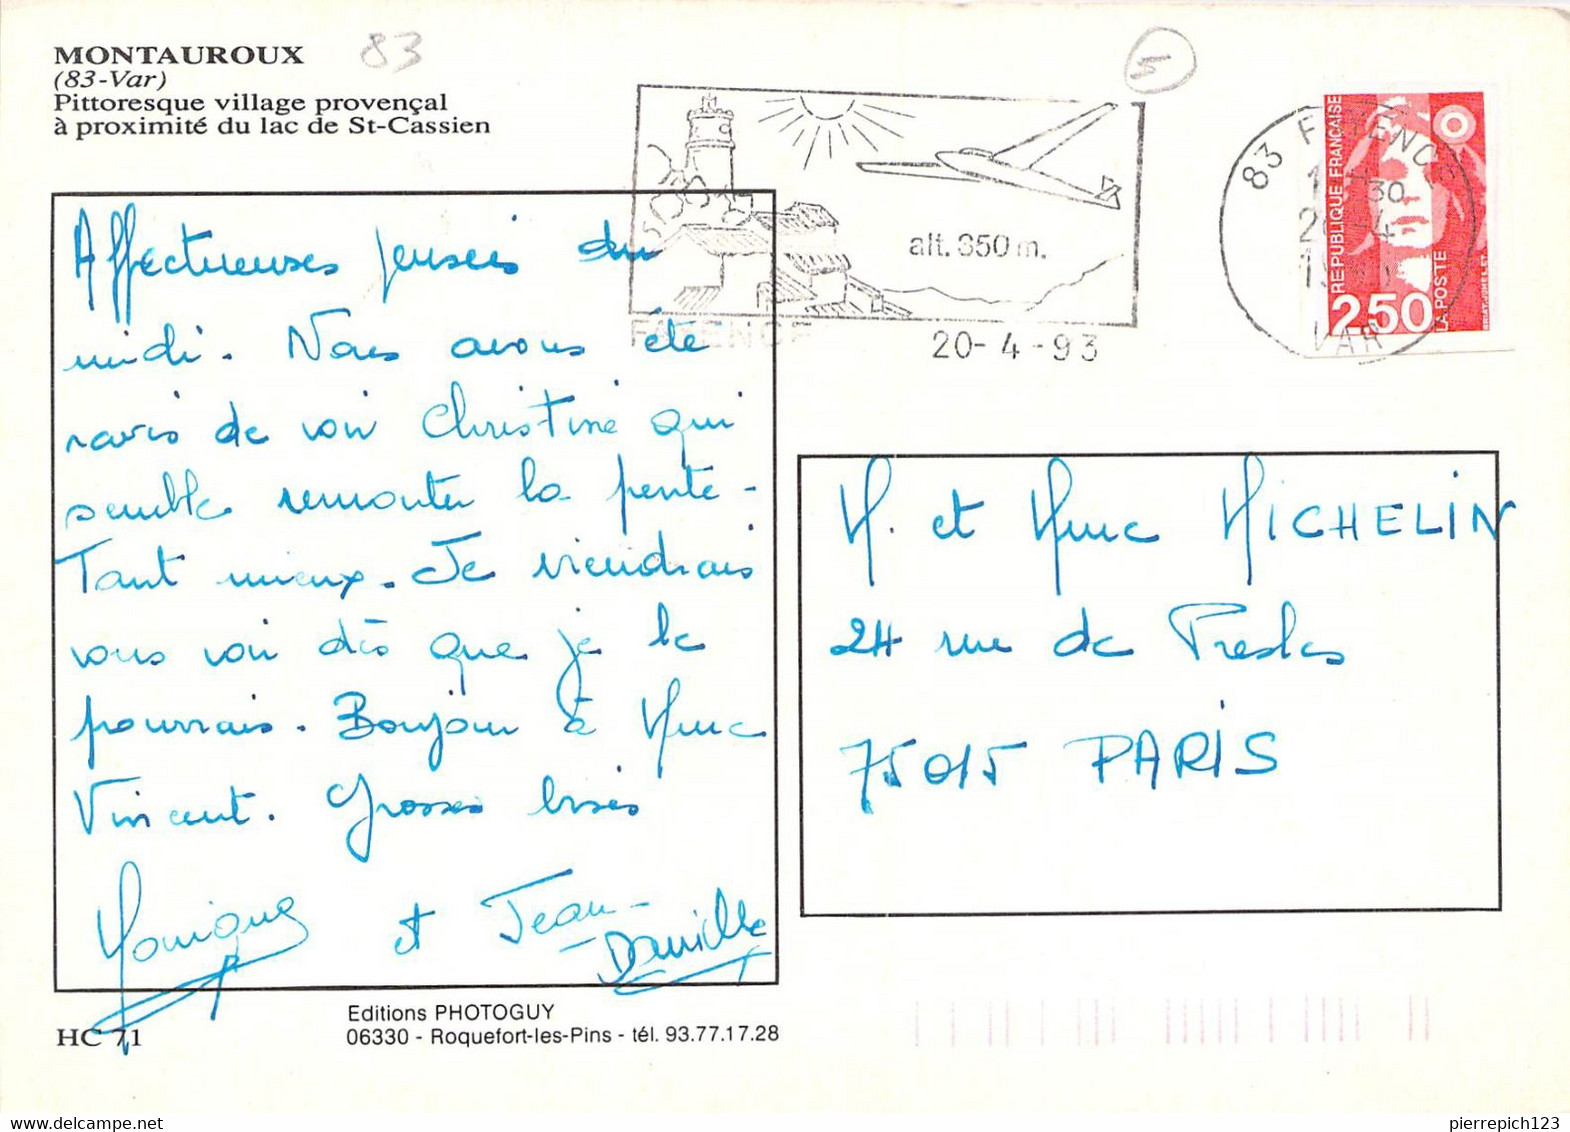 MONTAUROUX
(83-Var)
Pittoresque village provençal
à proximité du lac de St-Cassien
83
5
alt. 350 m.
FAYENCE
20-4-93
83 FAYENCE
30
VAR
REPUBLIQUE FRANÇAISE
2,50
LA POSTE
Affectueuses pensées du
midi. Nous avons été
ravis de voir Christine qui
semble remonter la pente -
Tant mieux. Je viendrais
vous voir dès que je le
pourrais. Bonjour à Mme
Vincent. Grosses bises
Monique et Jean-
Danielle
M. et Mme MICHELIN
24 rue de Presles
75015 PARIS
HC 71
Editions PHOTOGUY
06330 - Roquefort-les-Pins - tél. 93.77.17.28
pierrepich123